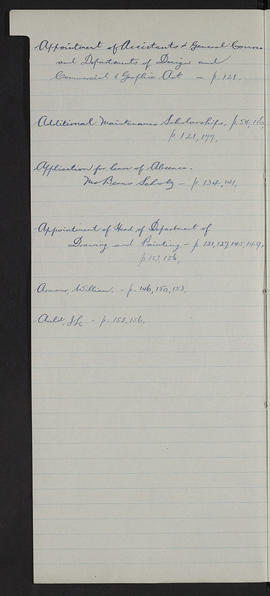 Appointment of Assistants & General Course
and Departments of Design and
Commercial & Graphic Art - p. 121.
Additional Maintenance Scholarships, p. 54,
p. 121, 177.
Application for leave of Absence.
- p. 134, 141.
Appointment of Head of Department of
Drawing and Painting - p. 121, 127, 145, 149,
p. 153, 156.
William, - p. 146, 150, 153.
- p. 152, 156.